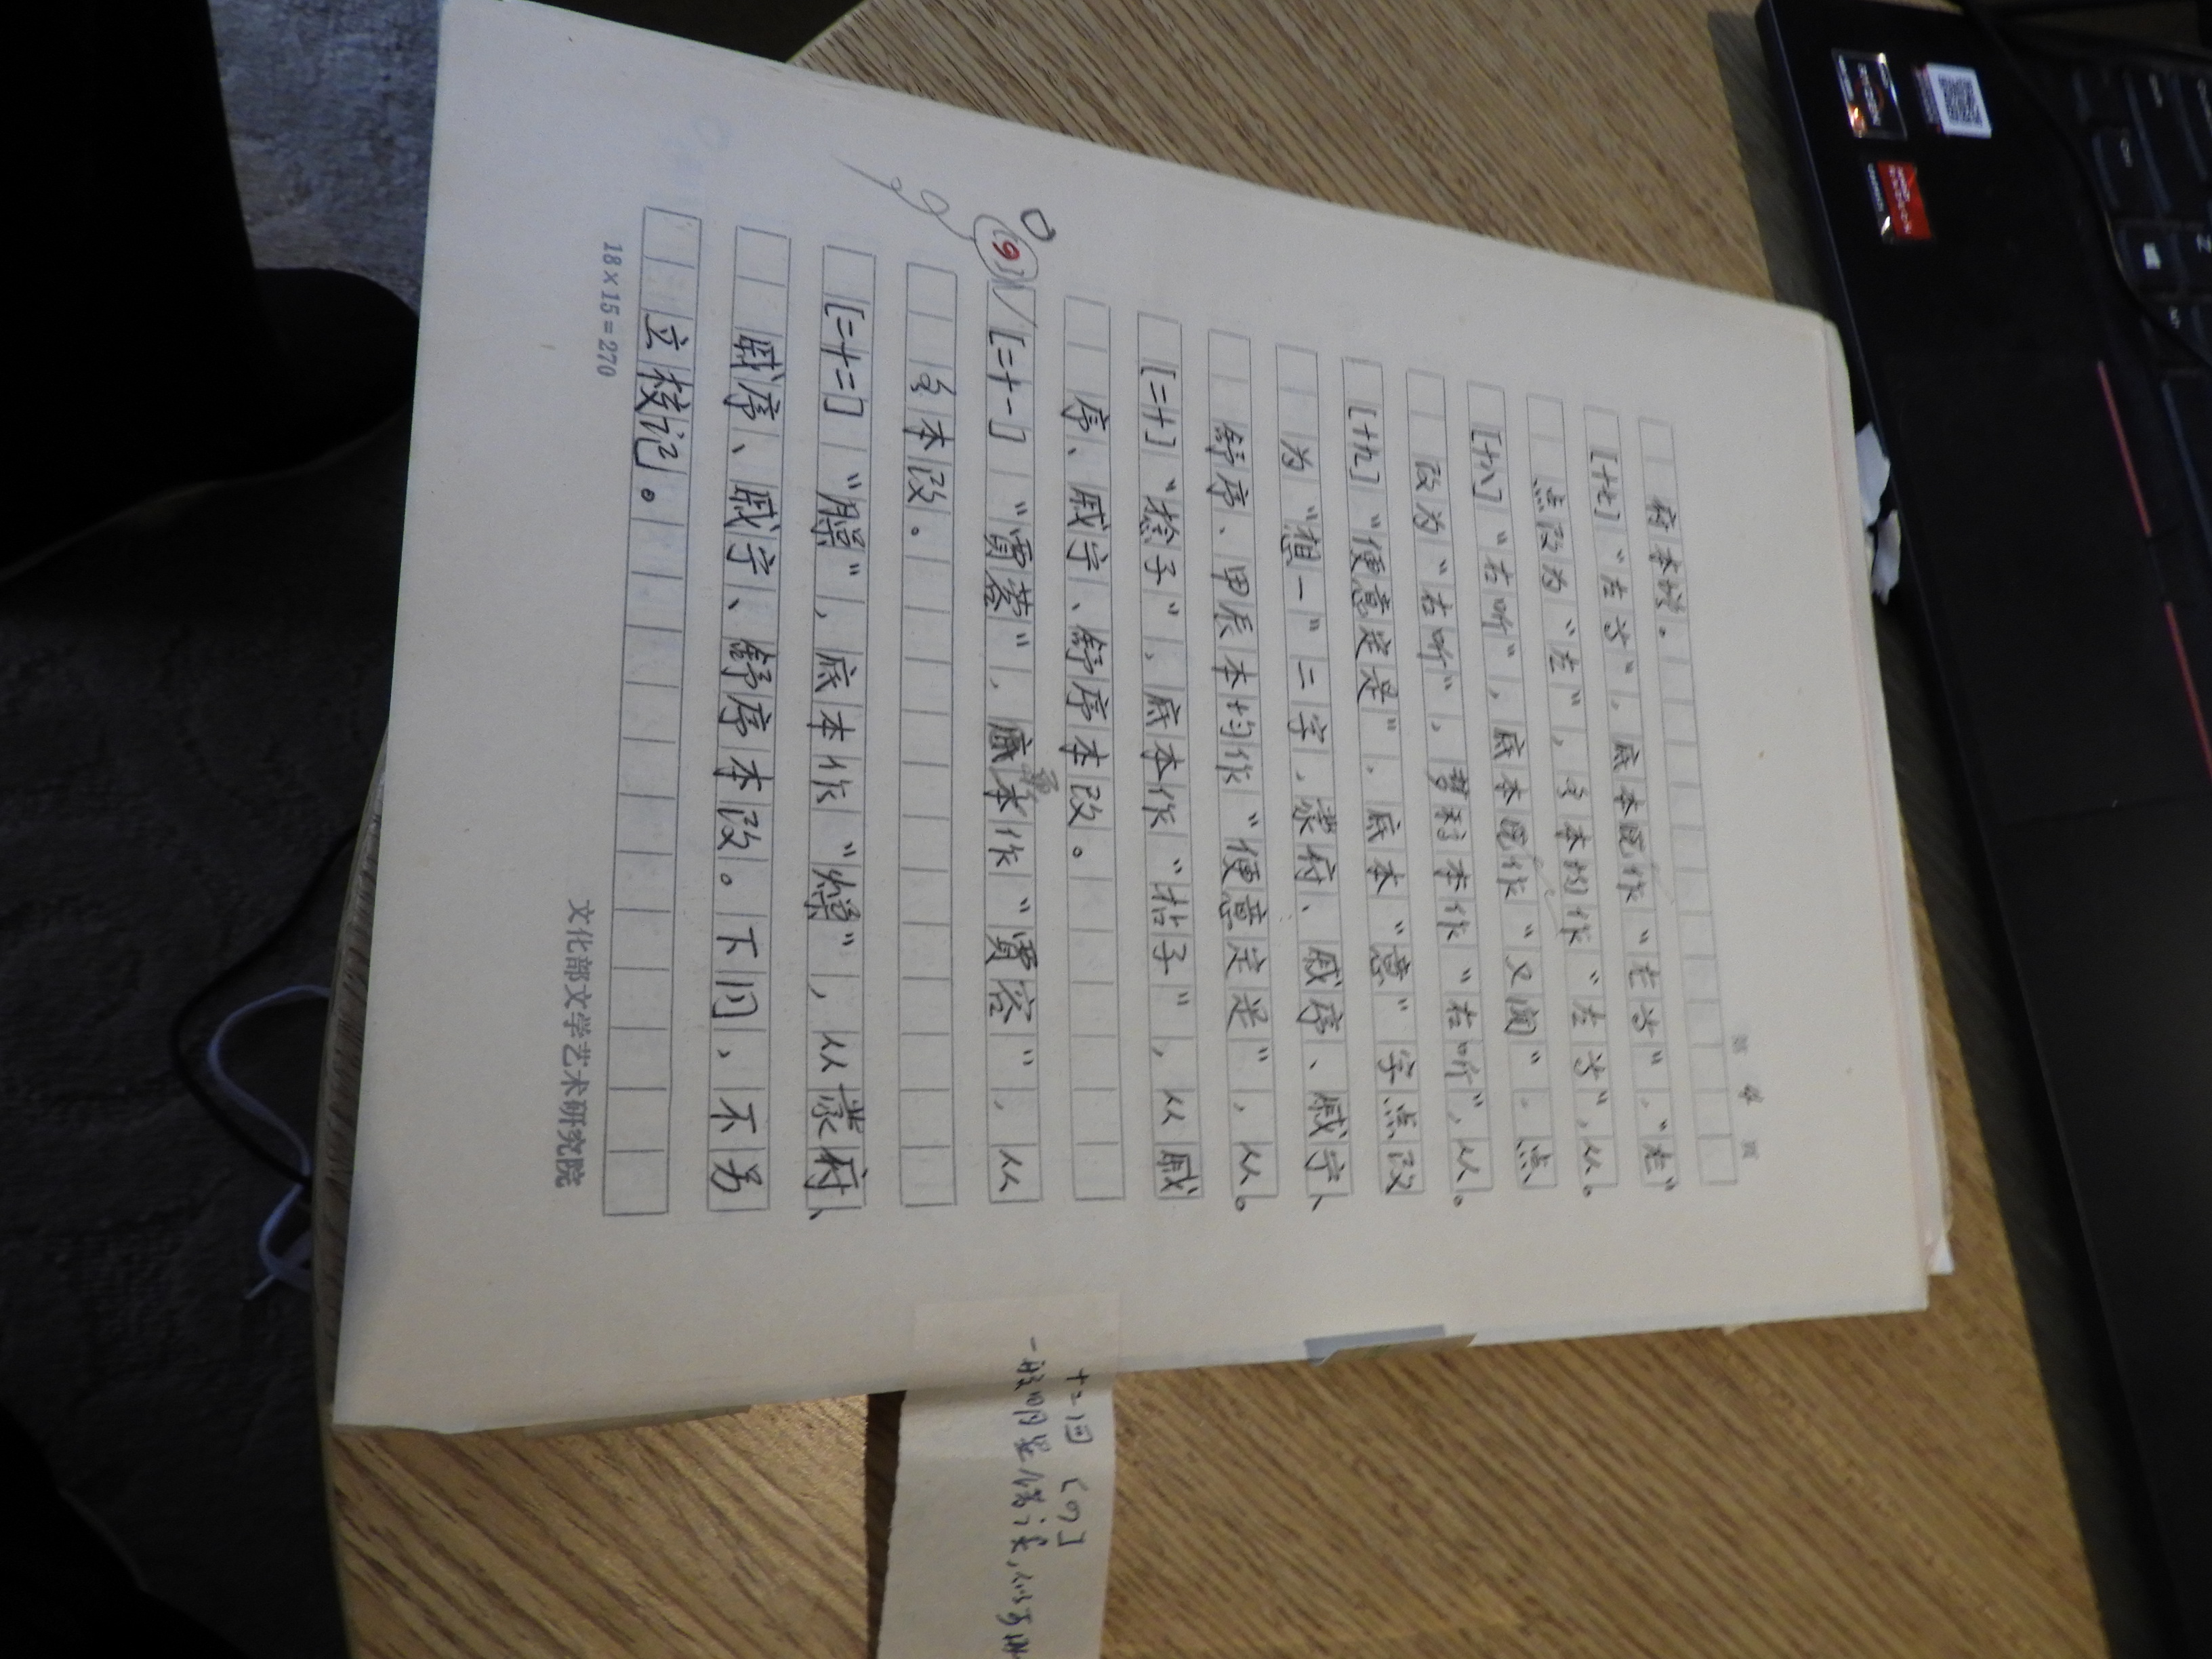 第 页
府本增。
[十七]“左为”，底本既作“老为”，“老”
点改为“左”，各本均作“左为”，从。
[十八]“右听”，底本既作“又闻”，点
改为“右听”，梦稿本作“右听”，从。
[十九]“便意定是”，底本“意”字点改
为“想一”二字，蒙府、戚序、戚宁、
舒序、甲辰本均作“便意定是”，从。
[二十]“捻子”，底本作“拈子”，从戚
序、戚宁、舒序本改。
(9) [二十一]“賈蓉”，底本作“賈容”，从
各本改。
[二十二]“臊”，底本作“燥”，从蒙府、
戚序、戚宁、舒序本改。下同，不另
立校记。
18×15=270
文化部文学艺术研究院
十二回〔9〕
一般明显